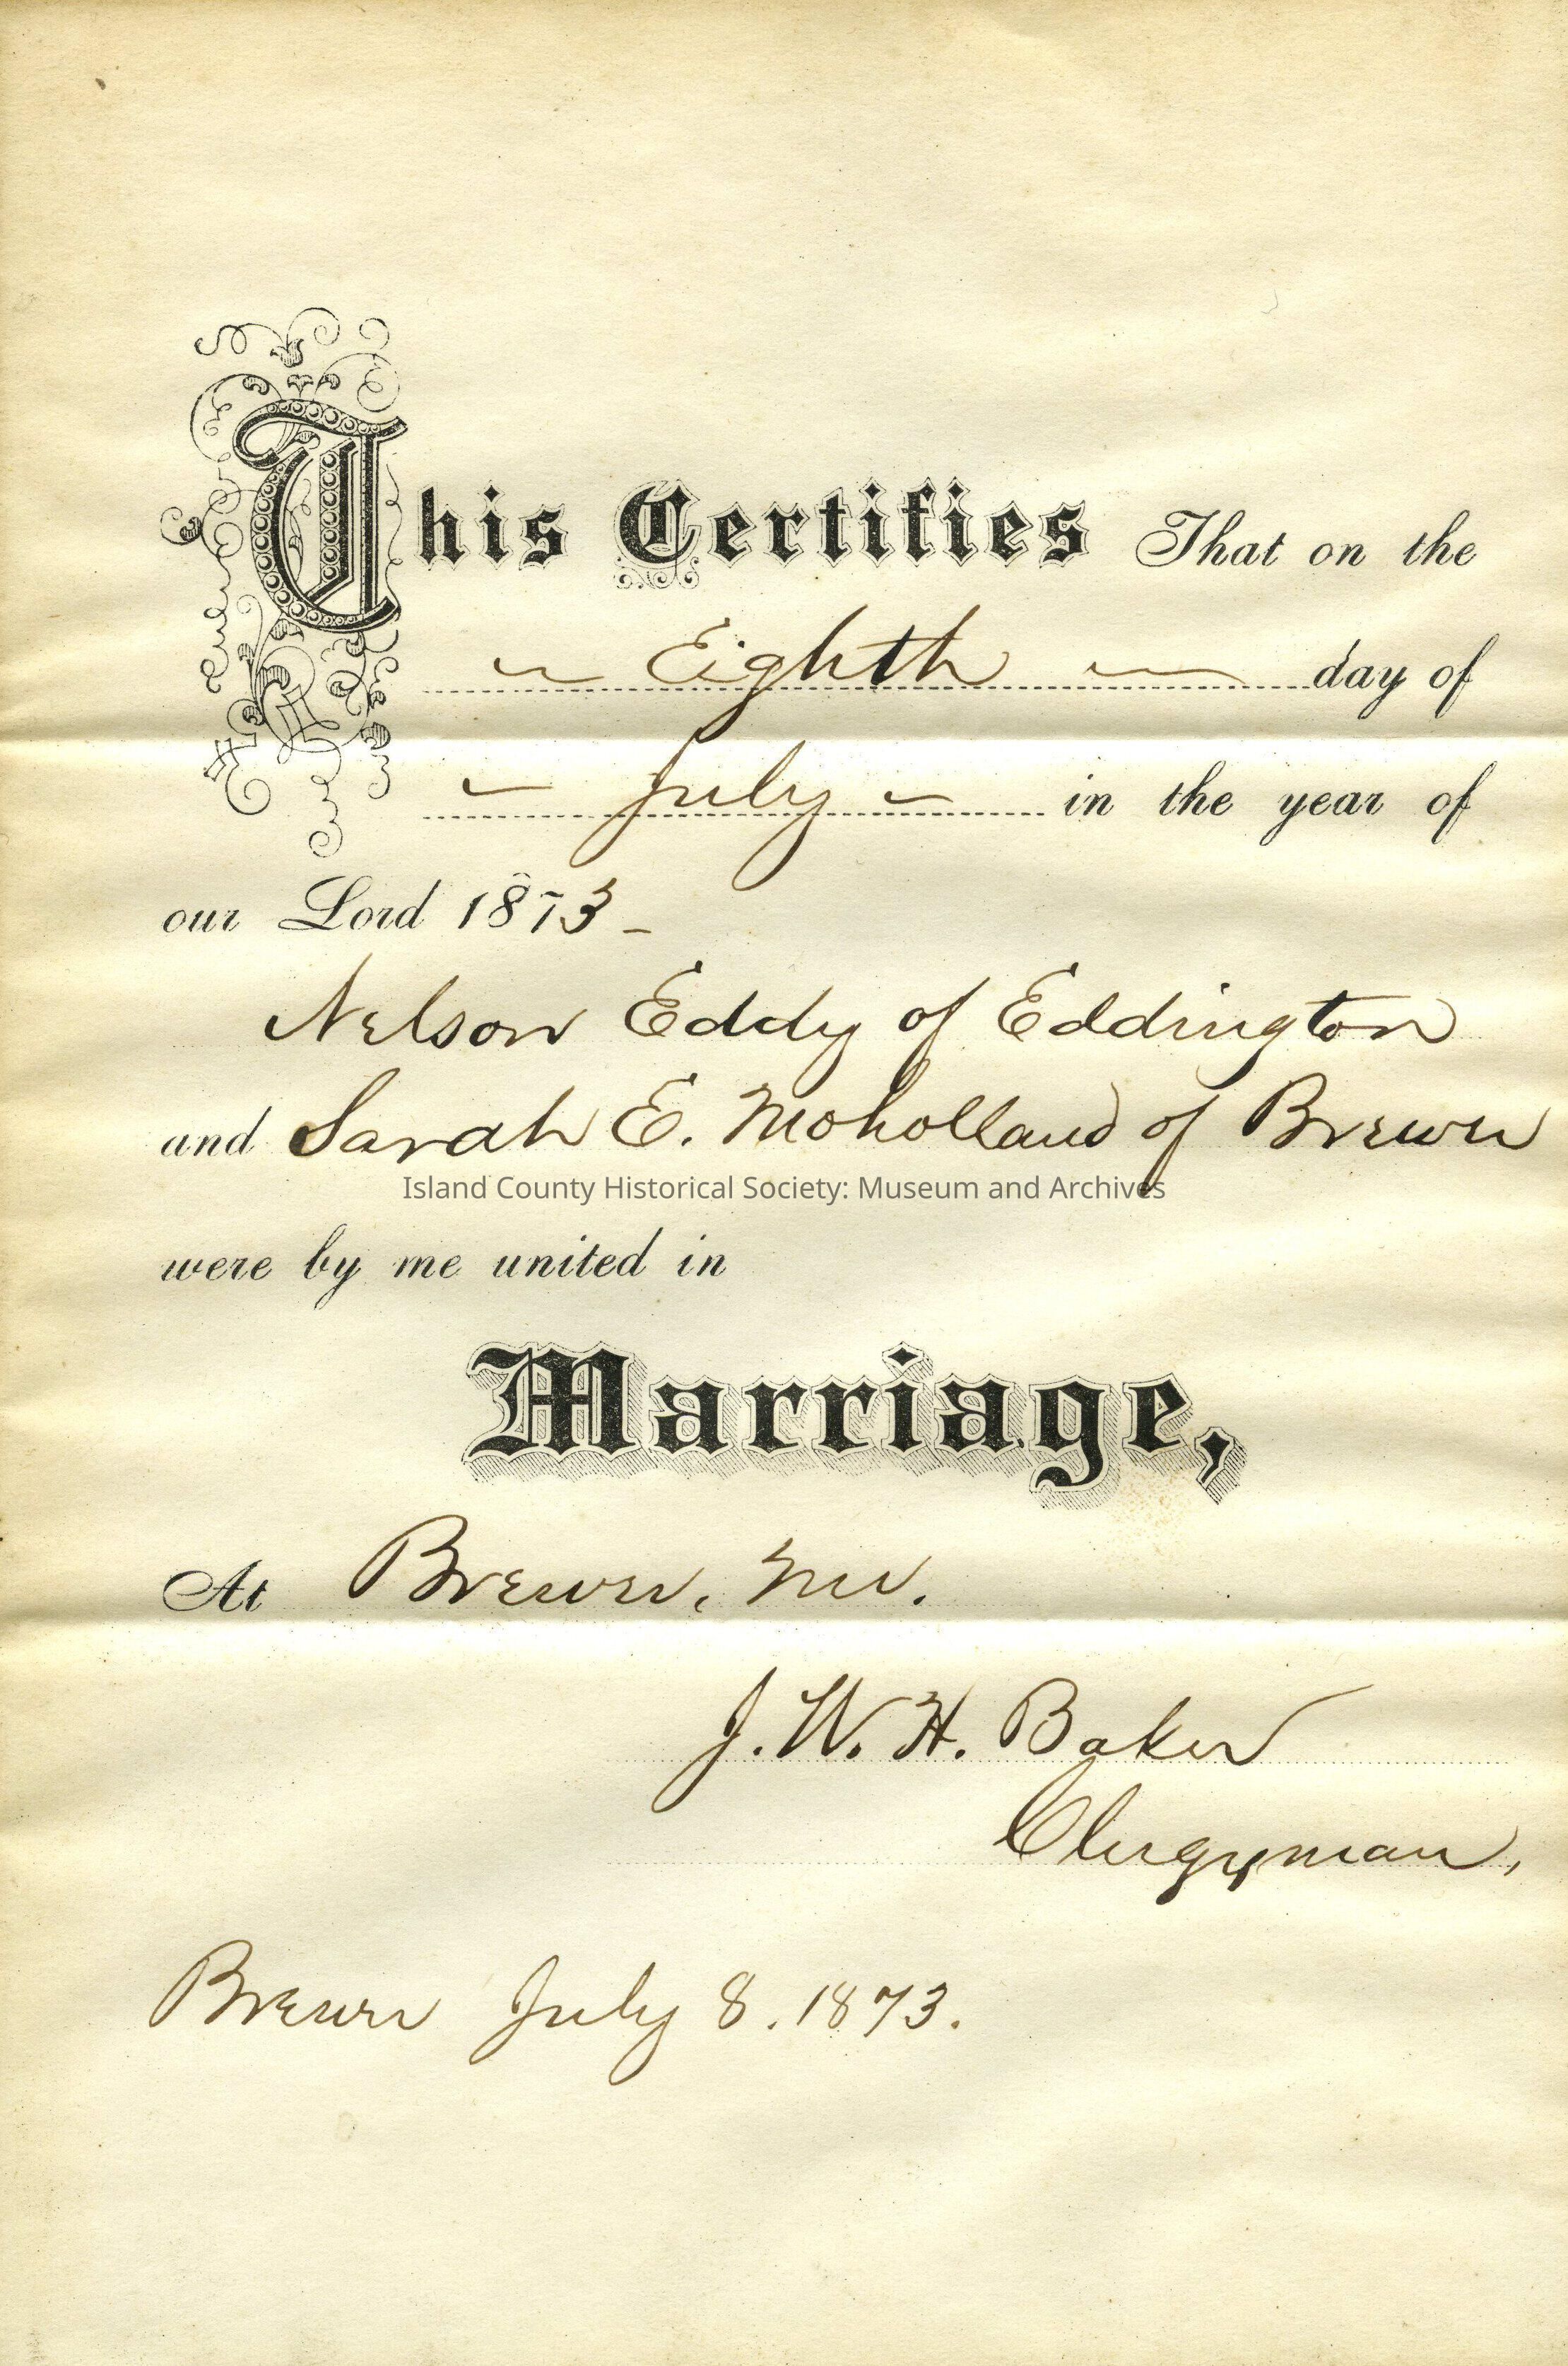 This Certifies That on the
~ Eighth ~ day of
~ July ~ in the year of
our Lord 1873 -
Nelson Eddy of Eddington
and Sarah E. Moholland of Brewer
Island County Historical Society: Museum and Archives
were by me united in
Marriage,
At Brewer, Me.
J. W. H. Baker
Clergyman,
Brewer July 8. 1873.